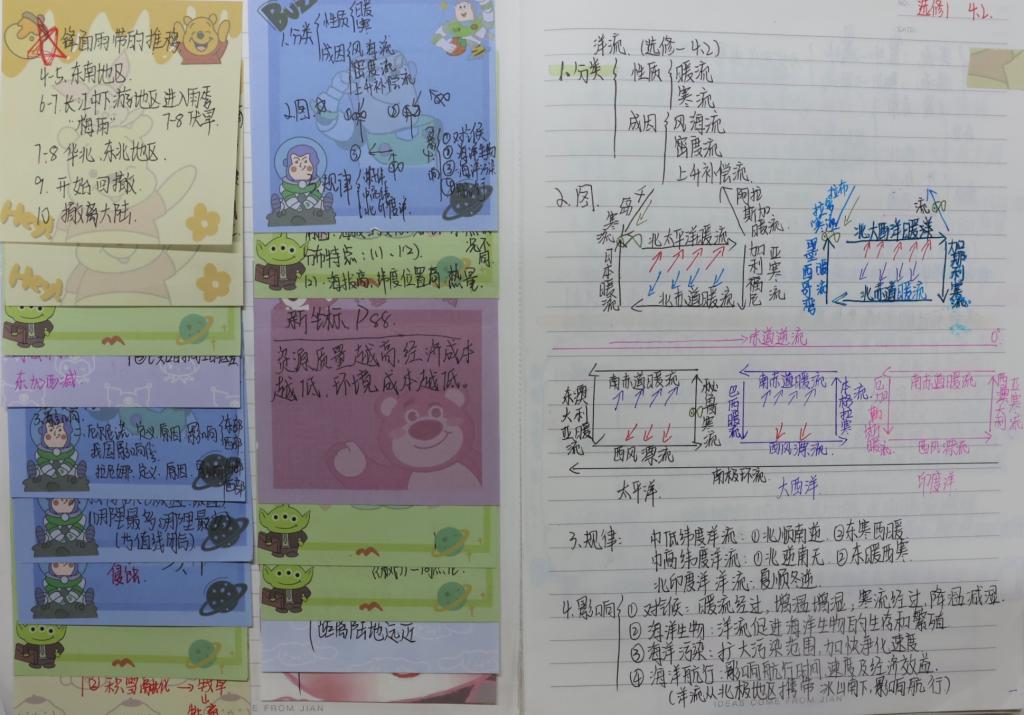 锋面雨带的推移
4-5. 东南地区
6-7. 长江中下游地区进入雨季
"梅雨" 7-8 伏旱
7-8 华北、东北地区.
9. 开始回撤.
10. 撤离大陆.
东加西减
厄尔尼诺: 定义 原因 影响
拉尼娜: 定义 原因
(1)哪里最多、哪里最少
侵蚀
② 积雪融化
1.分类
性质 暖 寒
成因 风海流
密度流
上升补偿流
2.图
规律
①对气候
②海洋生物
③海洋污染
布特点: (1). (2).
(2). 海拔高、纬度位置高, 热量
新坐标 P88.
资源质量越高, 经济成本
越低, 环境成本越低。
距离陆地远近
FROM JIAN
选修1 4.2.
DATE:
洋流 (选修一4.2)
1.分类 性质 暖流
寒流
成因 风海流
密度流
上升补偿流
2.图.
千岛寒流
日本暖流
北太平洋暖流
北赤道暖流
阿拉斯加暖流
加利福尼亚寒流
拉布拉多寒流
墨西哥湾暖流
北大西洋暖流
北赤道暖流
加那利寒流
赤道逆流 0°
东澳大利亚暖流
南赤道暖流
西风漂流
秘鲁寒流
巴西暖流
南赤道暖流
西风漂流
本格拉寒流
南赤道暖流
西风漂流
西澳大利亚寒流
南极环流
太平洋 大西洋 印度洋
3.规律: 中低纬度洋流: ①北顺南逆 ②东寒西暖
中高纬度洋流: ①北逆南无. ②东暖西寒
北印度洋洋流: 夏顺冬逆
4.影响 ① 对气候: 暖流经过, 增温增湿, 寒流经过, 降温减湿.
② 海洋生物: 洋流促进海洋生物的生存和繁殖
③ 海洋污染: 扩大污染范围, 加快净化速度
④ 海洋航行: 影响航行时间、速度及经济效益.
(洋流从北极地区携带冰山南下, 影响航行)
IDEAS COME FROM JIAN